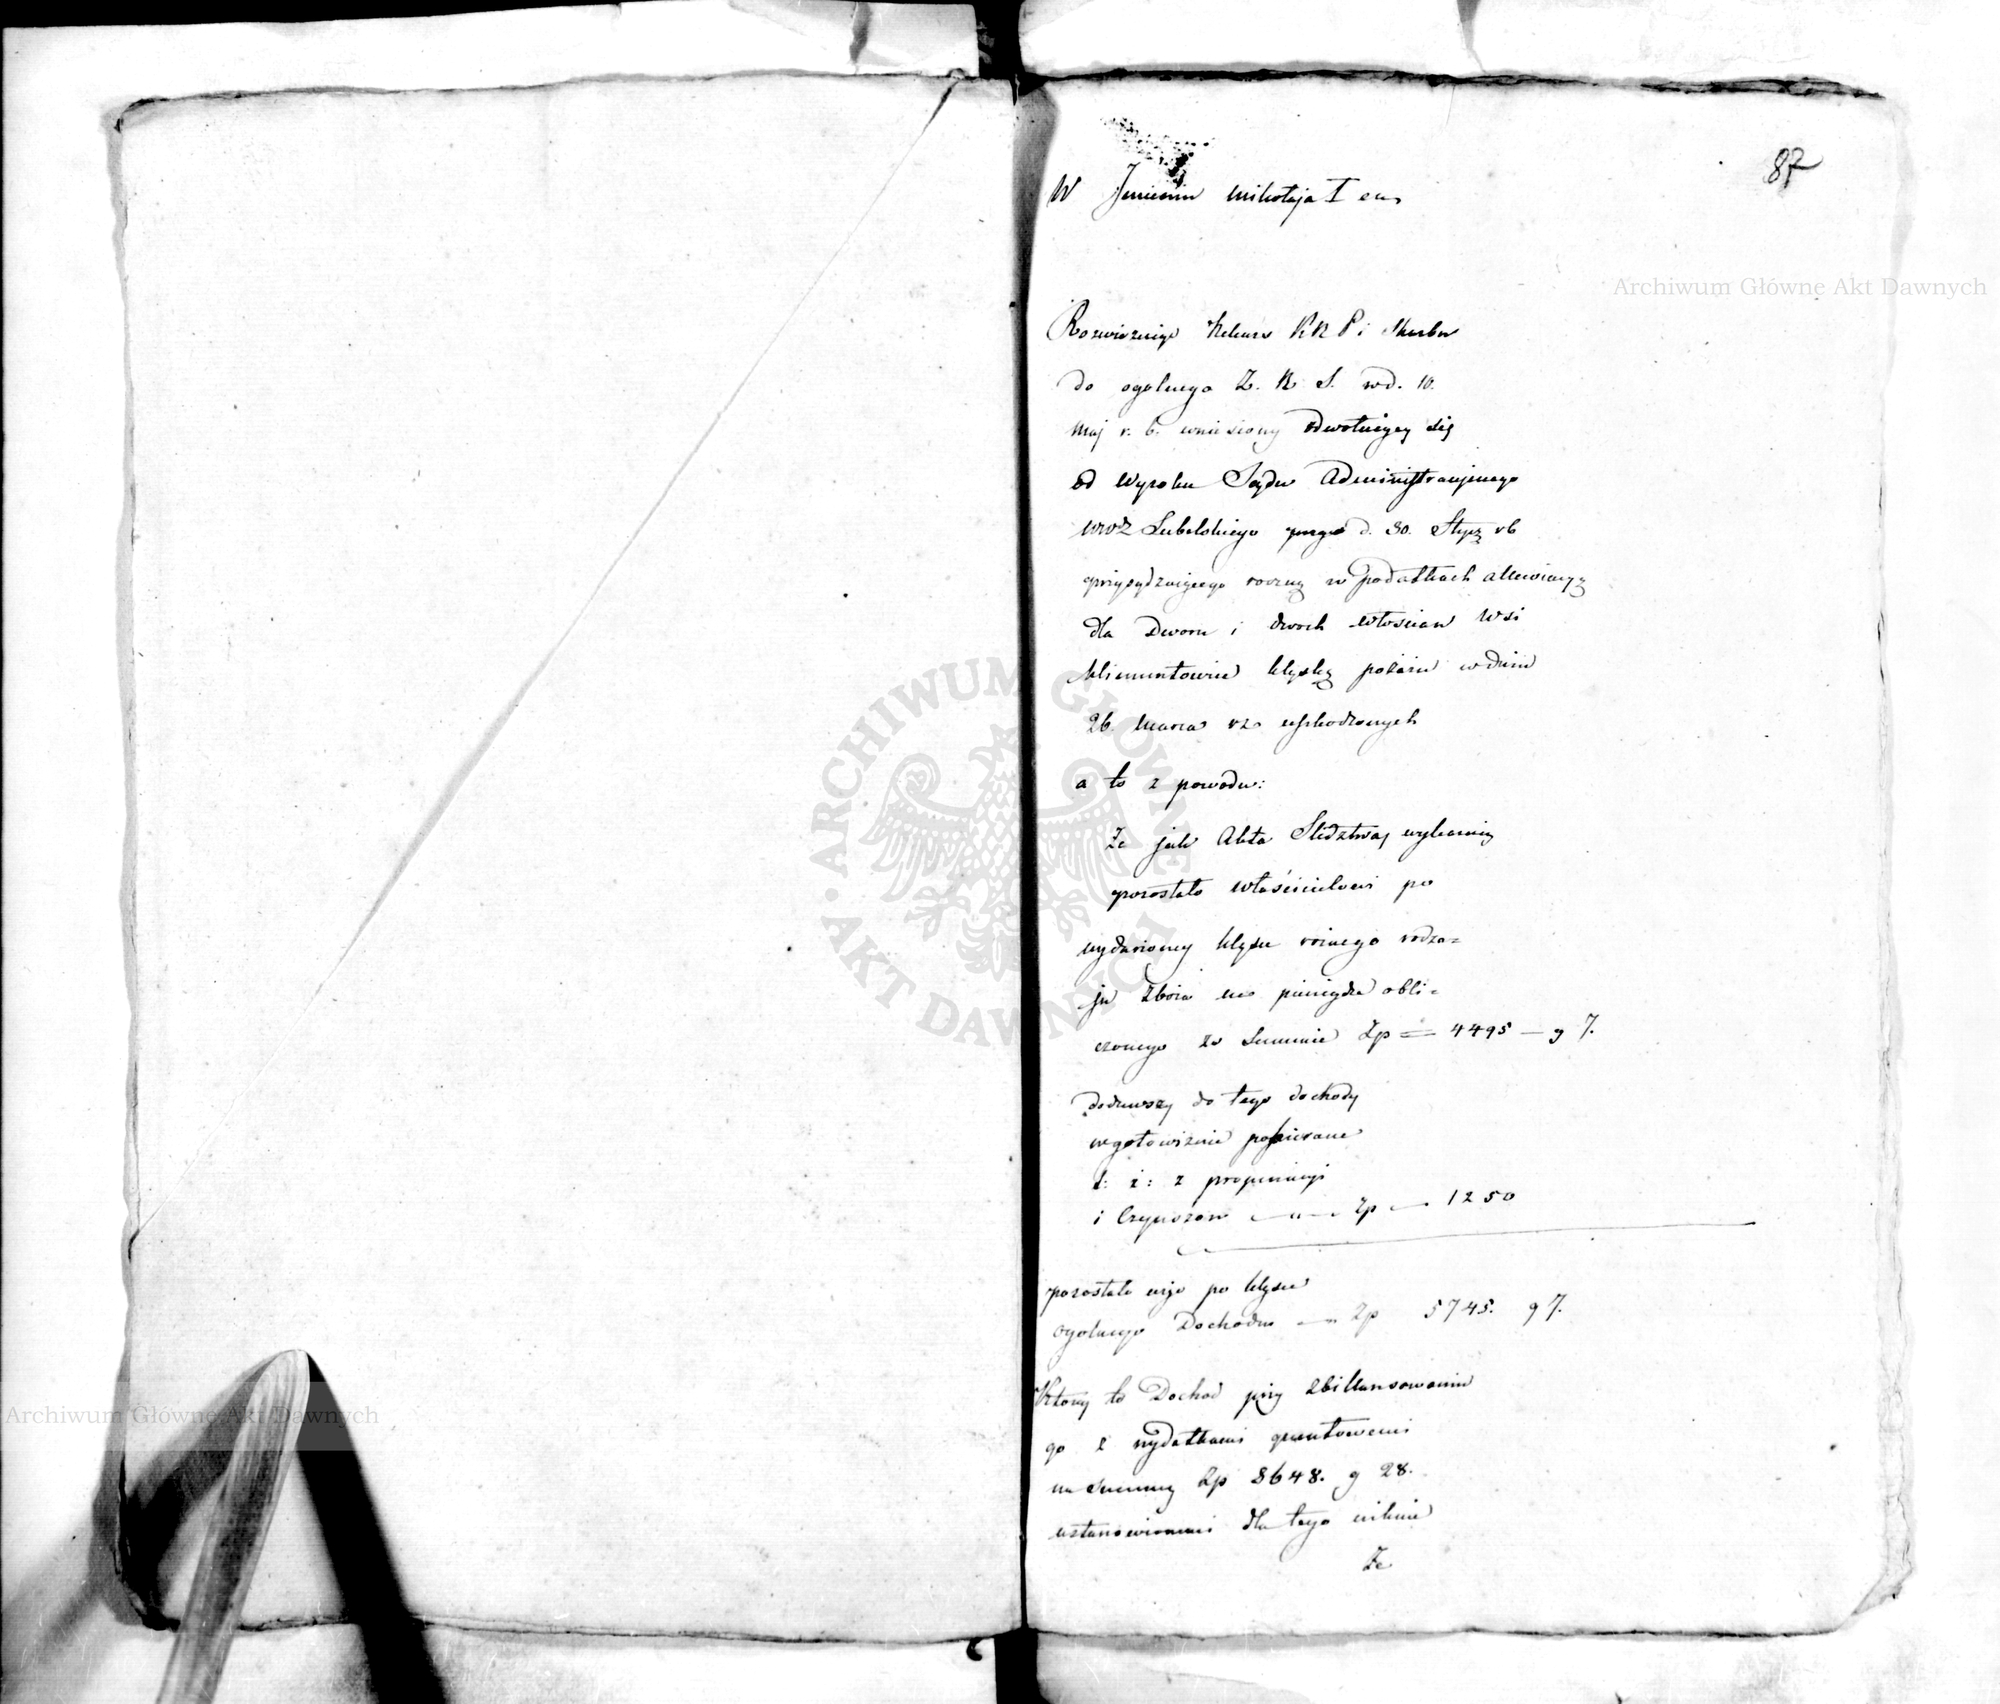 87
W Jmieniu Mikołaja I etc
Archiwum Główne Akt Dawnych
Rozwiązuiąc Rekurs KRP i Skarbu
do ogolnego Z. R. S. w d. 10.
Maj r. b. wniesiony odwołuiący się
od Wyroku Sądu Administracyjnego
wwdz Lubelskiego d. 30. Stycz rb
przysądzaiącego roczną w podatkach allewiacyą
dla Dworu i dwoch włościan Wsi
Klimuntowie klęską pożaru w dniu
26 Marca rz uszkodzonych
a to z powodu:
Że jak Akta Sledztwa wykazuią
pozostało właścicielowi po
wydarzoney klęsce rożnego rodza=
ju Zboża na pieniądze obli=
czonego w Summie Zp = 4495 — g 7.
dodawszy do tego dochody
w gotowiznie pobierane
t: i: z propinacyi
i Czynszow — „ — Zp — 1250
pozostało więc po klęsce
ogolnego Dochodu — Zp 5745. g 7.
Ktory to Dochod przy zbillansowaniu
go z wydatkami gruntowemi
na Summę Zp 8648. g 28.
ustanowionemi dla tego
Że
ARCHIWUM GŁÓWNE AKT DAWNYCH
Archiwum Główne Akt Dawnych